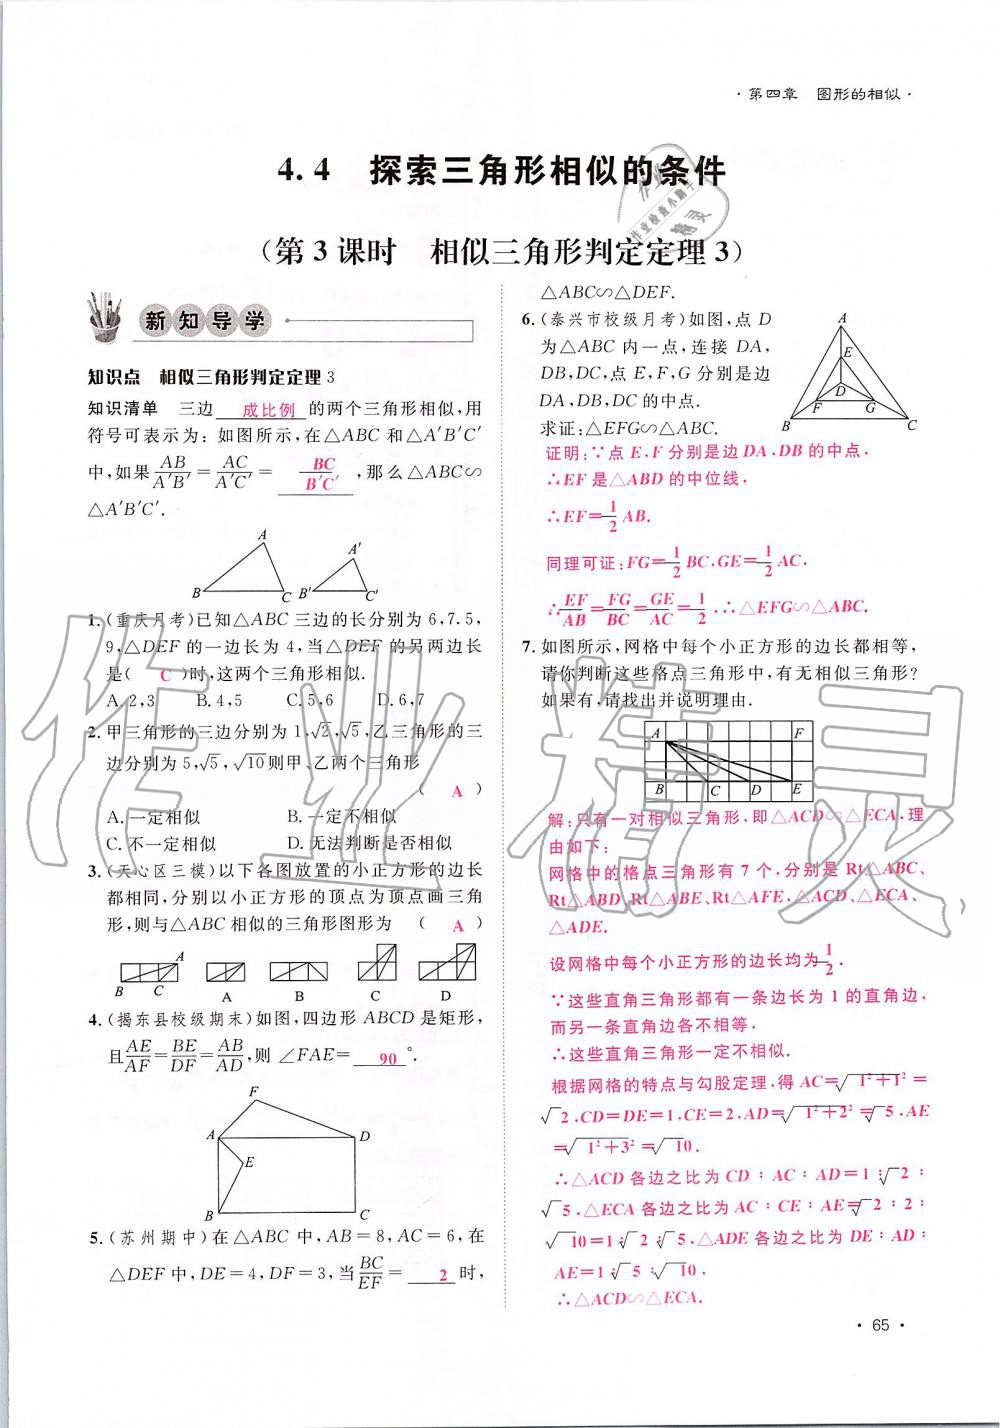 ·第四章 图形的相似·
4.4 探索三角形相似的条件
(第3课时 相似三角形判定定理3)
新知导学
知识点 相似三角形判定定理3
知识清单 三边 成比例 的两个三角形相似,用
符号可表示为:如图所示,在△ABC和△A′B′C′
中,如果AB/A′B′=AC/A′C′= BC/B′C′ ,那么△ABC∽
△A′B′C′.
A A′
B C B′ C′
1.(重庆月考)已知△ABC三边的长分别为6,7.5,
9,△DEF的一边长为4,当△DEF的另两边长
是( C )时,这两个三角形相似.
A.2,3 B.4,5 C.5,6 D.6,7
2.甲三角形的三边分别为1,√2,√5,乙三角形的三
边分别为5,√5,√10则甲、乙两个三角形
( A )
A.一定相似 B.一定不相似
C.不一定相似 D.无法判断是否相似
3.(天心区三模)以下各图放置的小正方形的边长
都相同,分别以小正方形的顶点为顶点画三角
形,则与△ABC相似的三角形图形为 ( A )
A
B C A B C D
4.(揭东县校级期末)如图,四边形ABCD是矩形,
且AE/AF=BE/DF=AB/AD,则∠FAE= 90 °.
F
A D
E
B C
5.(苏州期中)在△ABC中,AB=8,AC=6,在
△DEF中,DE=4,DF=3,当BC/EF= 2 时,
△ABC∽△DEF.
6.(泰兴市校级月考)如图,点D
为△ABC内一点,连接DA,
DB,DC,点E,F,G分别是边
DA,DB,DC的中点.
求证:△EFG∽△ABC.
A
E
D
F G
B C
证明:∵点E,F分别是边DA,DB的中点,
∴EF是△ABD的中位线,
∴EF=1/2AB.
同理可证:FG=1/2BC,GE=1/2AC.
∴EF/AB=FG/BC=GE/AC=1/2,∴△EFG∽△ABC.
7.如图所示,网格中每个小正方形的边长都相等,
请你判断这些格点三角形中,有无相似三角形?
如果有,请找出并说明理由.
A F
B C D E
解:只有一对相似三角形,即△ACD∽△ECA,理
由如下:
网格中的格点三角形有7个,分别是Rt△ABC、
Rt△ABD、Rt△ABE、Rt△AFE、△ACD、△ECA、
△ADE.
设网格中每个小正方形的边长均为1/2.
∵这些直角三角形都有一条边长为1的直角边,
而另一条直角边各不相等,
∴这些直角三角形一定不相似.
根据网格的特点与勾股定理,得AC=√1²+1²=
√2,CD=DE=1,CE=2,AD=√1²+2²=√5,AE
=√1²+3²=√10.
∴△ACD各边之比为CD∶AC∶AD=1∶√2∶
√5,△ECA各边之比为AC∶CE∶AE=√2∶2∶
√10=1∶√2∶√5,△ADE各边之比为DE∶AD∶
AE=1∶√5∶√10.
∴△ACD∽△ECA.
·65·
作业精灵
作业检查小助手